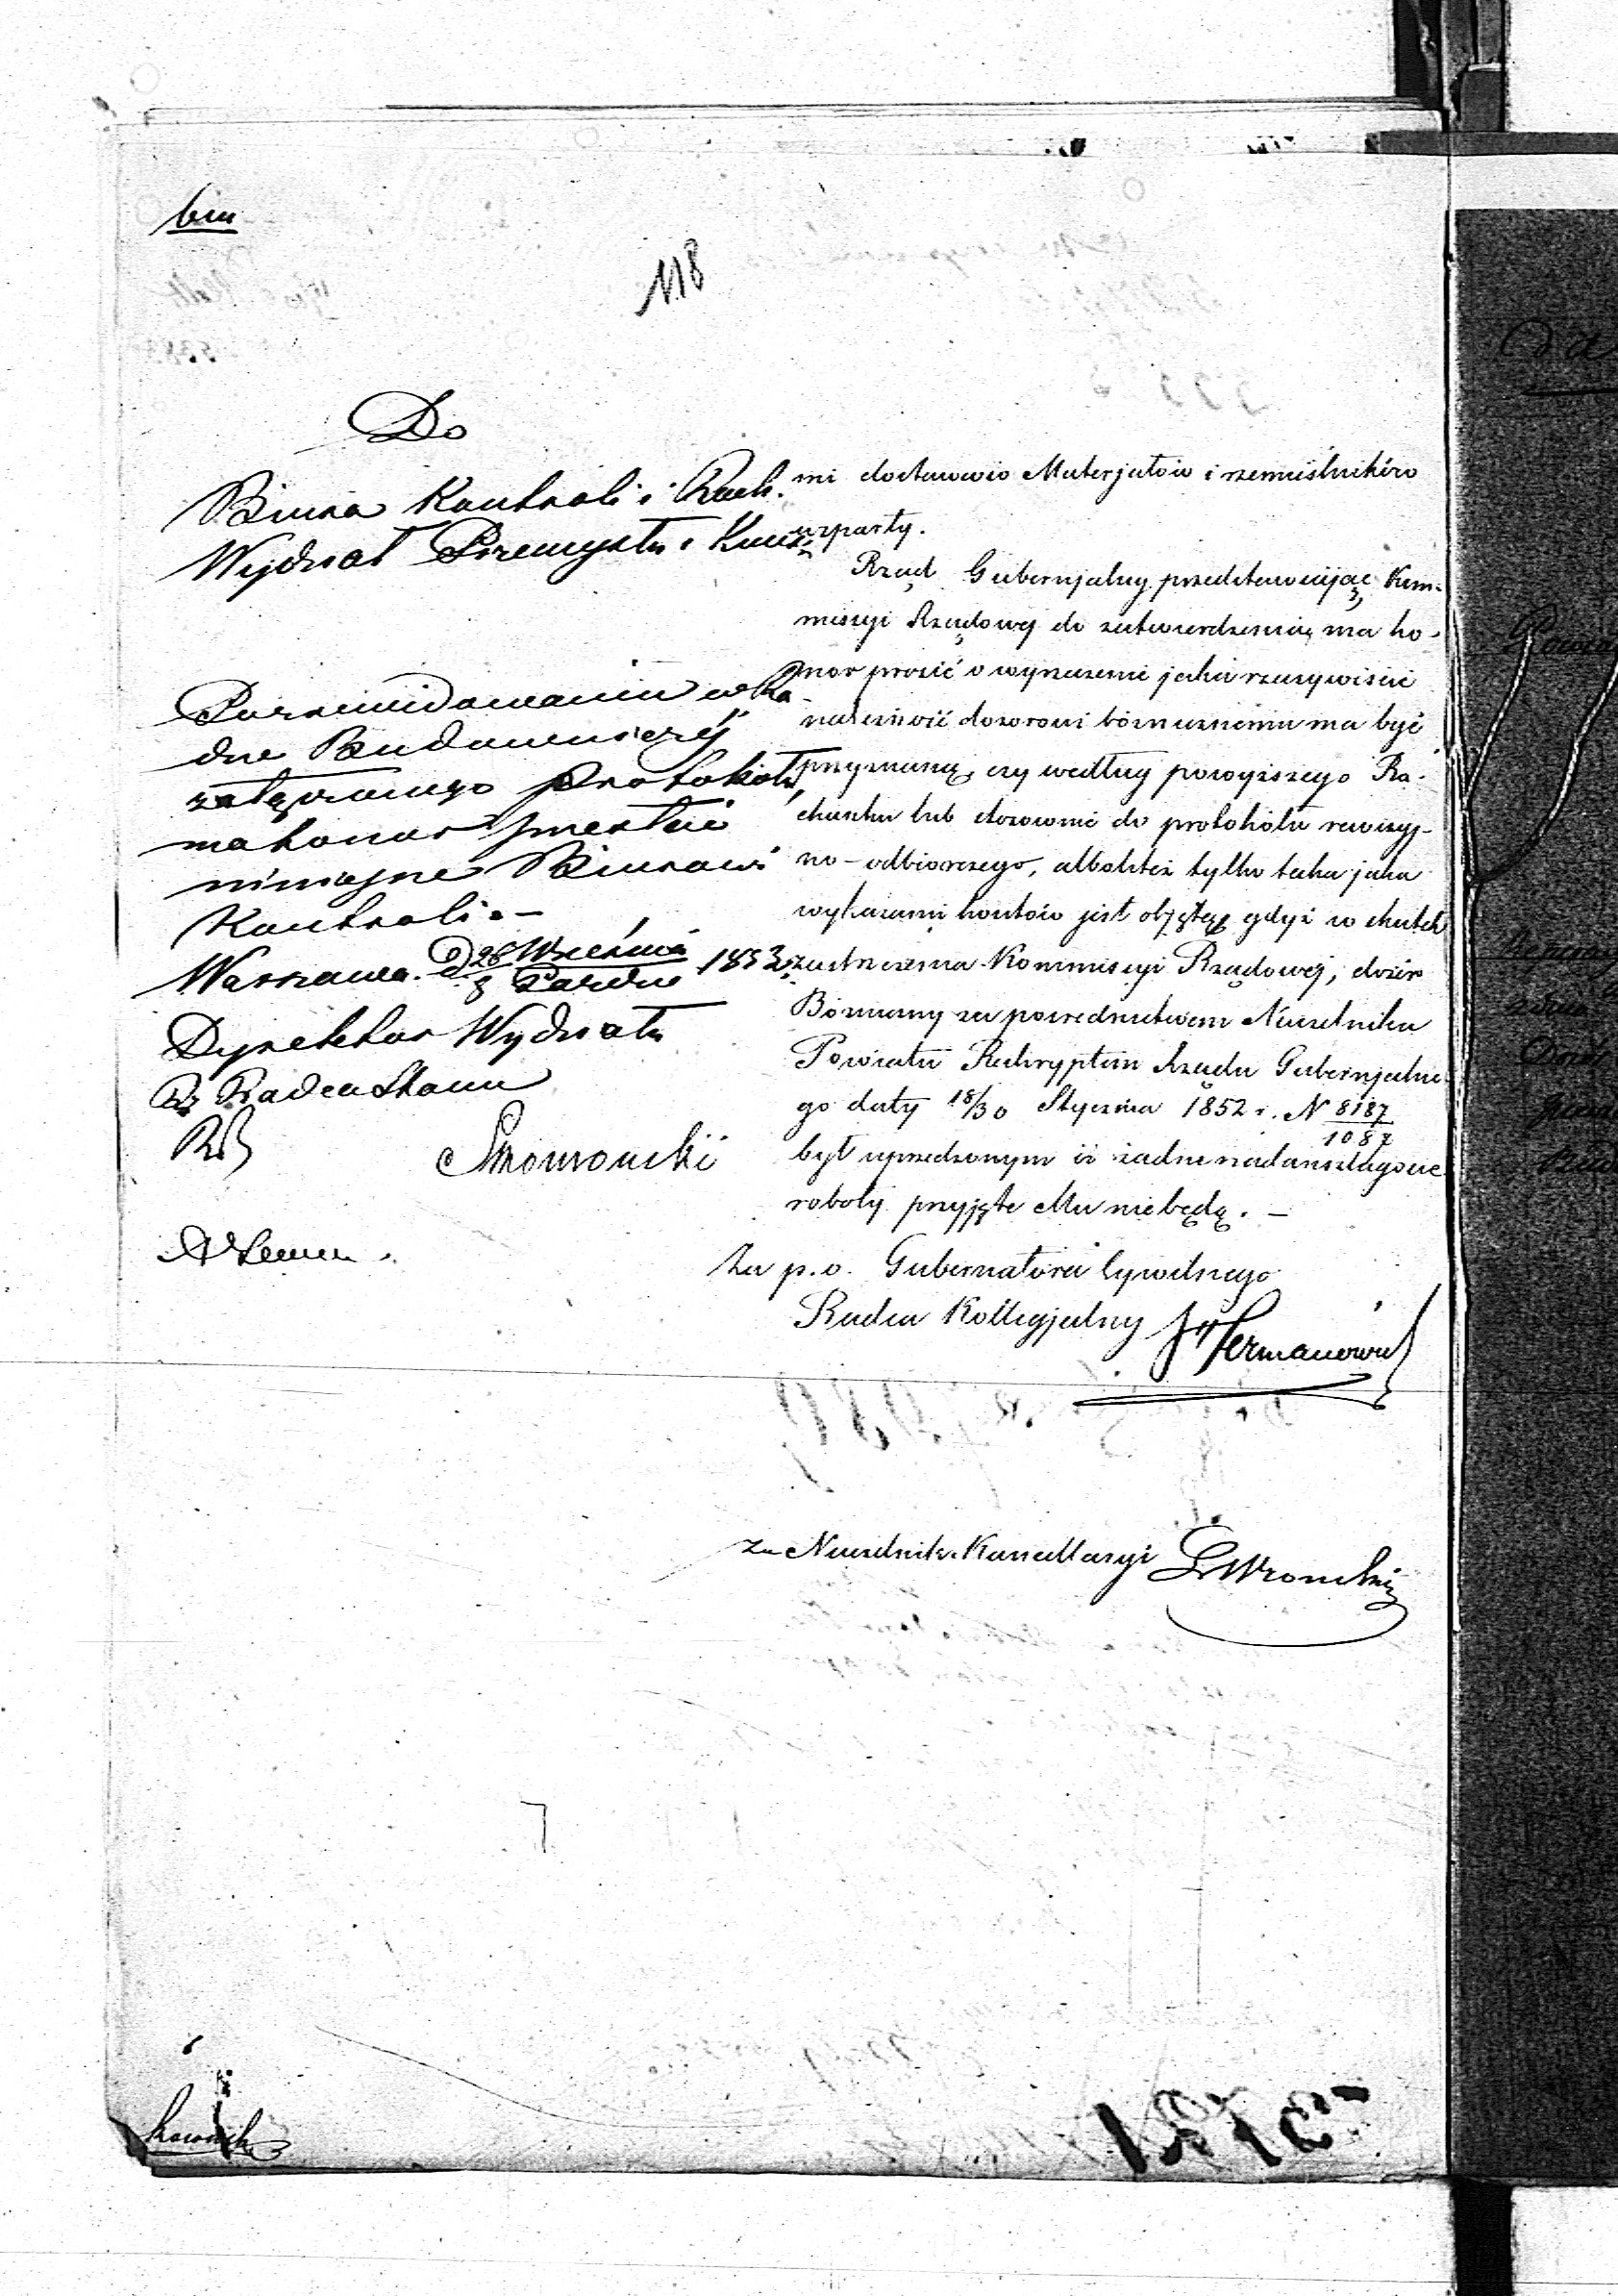 118
Do
Biura Kontroli i Rach.
Wydział Przemysłu i Kun.
zrewidowaniu
załączonego protokołu
ma honor przesłać
niniejsze Biurowi
Kontroli. –
Warszawa d. 26 Września / 8 Paźdz. 1853 r.
Dyrektor Wydziału
Rz. Radca Stanu
mi dostawców Materjałów i rzemieślników
wsparty.
Rząd Gubernjalny przedstawiając Kom-
missyi Rządowej do zatwierdzenia ma ho-
nor prosić o wyrażenie jaka rzeczywiście
należność dozorowi bóżniczniemu ma być
przyznaną, czy według powyższego Ra-
chunku lub stosownie do protokółu rewizyj-
no – odbiorczego, albo też tylko taka jaka
wykazami kosztów jest objętą gdyż w skutek
zastrzeżenia Kommissyi Rządowej, dozór
Bóżniczny za pośrednictwem Naczelnika
Powiatu Reskryptem Rządu Gubernjalne-
go daty 18/30 Stycznia 1852 r. N 8187/1087
był uprzedzonym iż żadne nadanszlagowe
roboty przyjęte Mu nie będą. –
Za p.o. Gubernatora Cywilnego
Radca Kollegjalny J Hermanowicz
za Naczelnik Kancellaryi Wroncki